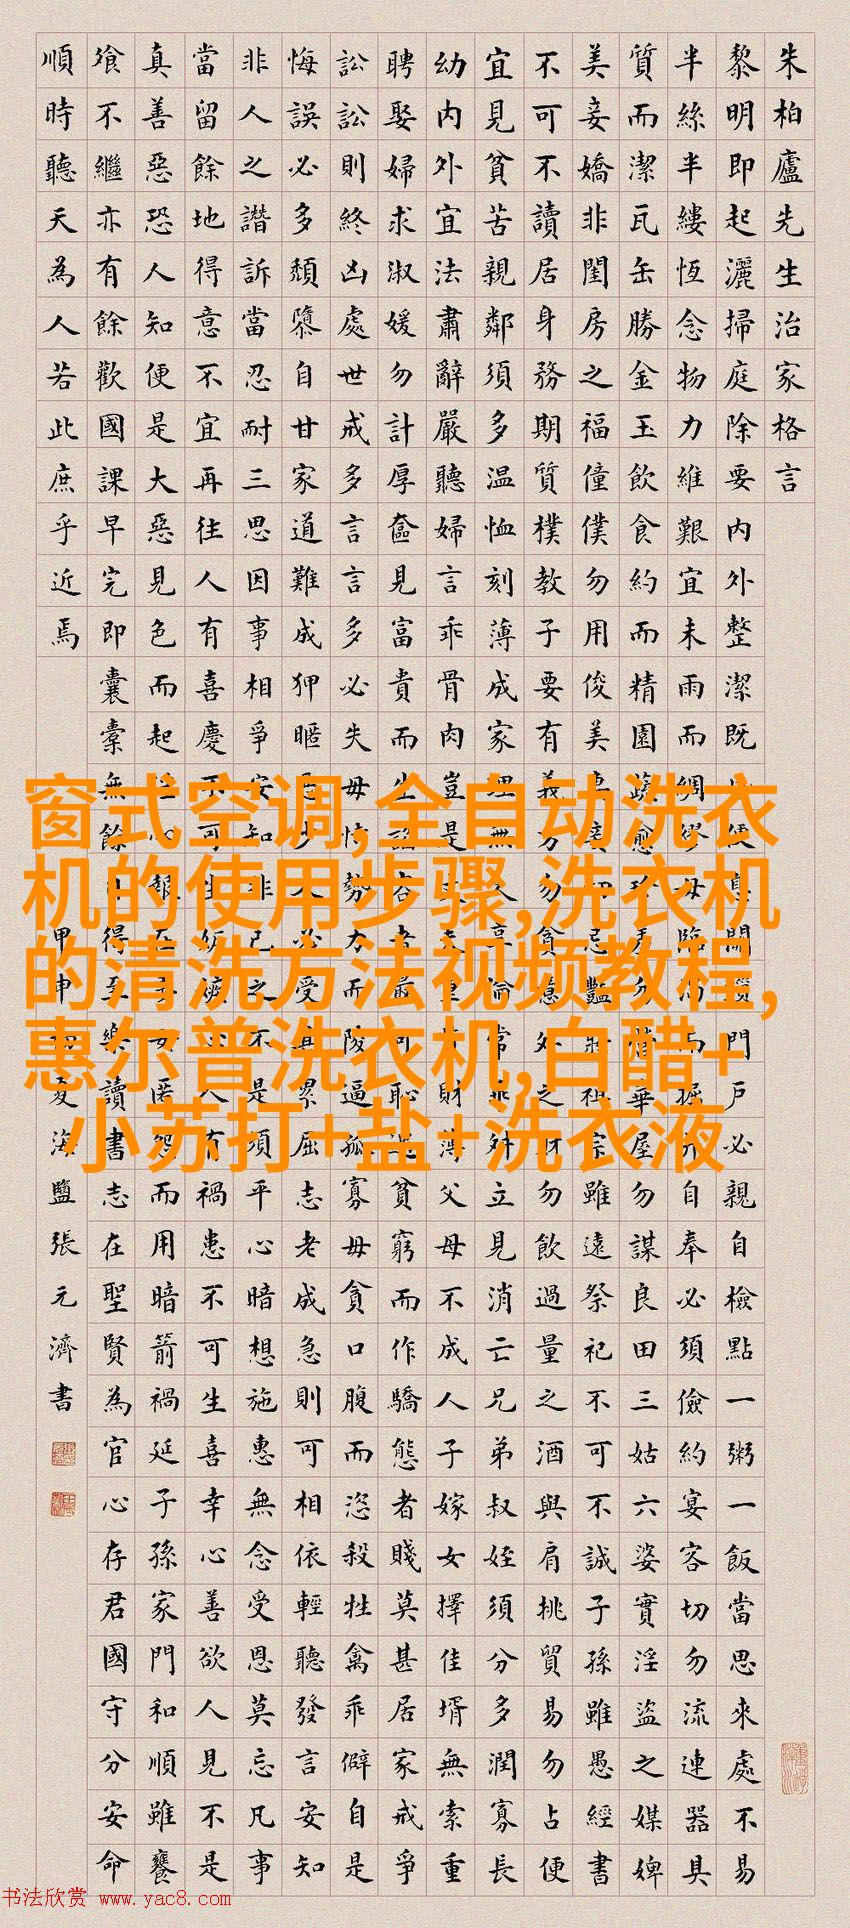 朱柏廬先生治家格言
黎明即起灑掃庭除要內外整潔既便息關鎖門戶必親自檢點一粥一飯當思來處不易
半絲半縷恆念物力維艱宜未雨而綢繆毋臨渴而掘井自奉必須儉約宴客切勿流連器具
質而潔瓦缶勝金玉飲食約而精園蔬愈珍羞勿營華屋勿謀良田三姑六婆實淫盜之媒婢
美妾嬌非閨房之福僮僕勿用俊美妻妾切忌豔妝祖宗雖遠祭祀不可不誠子孫雖愚經書
不可不讀居身務期質樸教子要有義方勿貪意外之財勿飲過量之酒與肩挑貿易勿占便
宜見貧苦親鄰須多温恤刻薄成家理無久享倫常乖舛立見消亡兄弟叔姪須分多潤寡長
幼內外宜法肅辭嚴聽婦言乖骨肉豈是丈夫重貲財薄父母不成人子嫁女擇佳壻無索重
聘娶婦求淑媛勿計厚奩見富貴而生諂容者最可恥遇貧窮而作驕態者賤莫甚居家戒爭
訟訟則終凶處世戒多言言多必失毋恃勢力而陵逼孤寡毋貪口腹而恣殺牲禽乖僻自是
悔誤必多頹隳自甘家道難成狎暱惡少久必受其累屈志老成急則可相依輕聽發言安知
非人之譖訴當忍耐三思因事相爭安知非己之不是須平心暗想施惠無念受恩莫忘凡事
當留餘地得意不宜再往人有喜慶不可生妬嫉心人有禍患不可生喜幸心善欲人見不是
真善惡恐人知便是大惡見色而起淫心報在妻女匿怨而用暗箭禍延子孫家門和順雖饔
飧不繼亦有餘歡國課早完即囊橐無餘自得至樂讀書志在聖賢為官心存君國守分安命
順時聽天為人若此庶乎近焉
甲申初夏海鹽張元濟書
窗式空调,全自动洗衣
机的使用步骤,洗衣机
的清洗方法视频教程,
惠尔普洗衣机,白醋+
小苏打+盐+洗衣液
书法欣赏 www.yac8.com